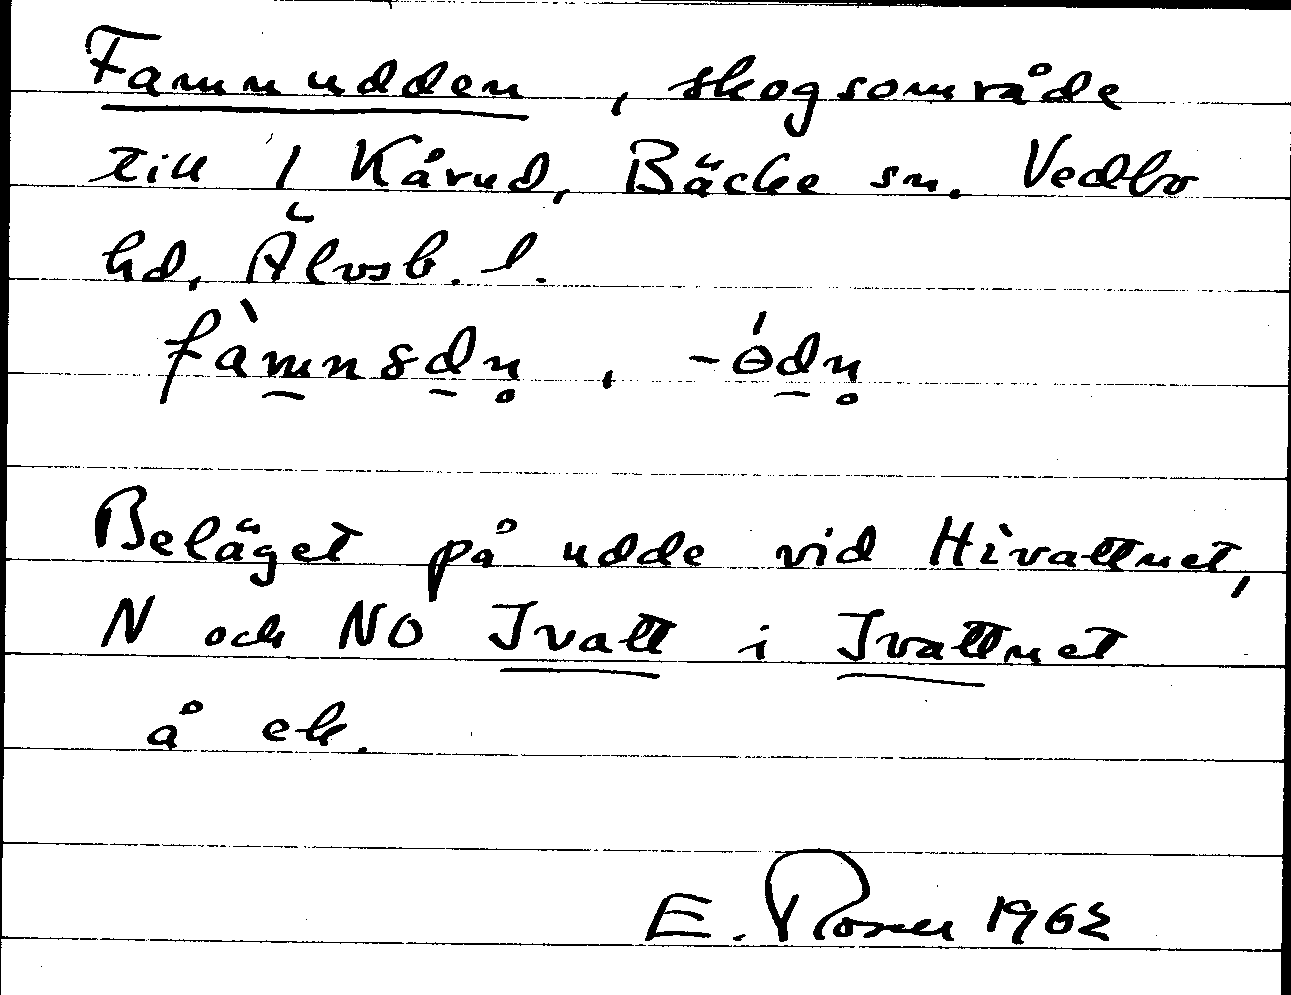 Famnudden, skogsområde
till 1 Kårud, Bäcke sn. Vedbo
hd, Älvsb. l.
fàmnsdn̥, -ódn̥
Beläget på udde vid Hivattnet,
N och NO Ivatt i Ivattnet
å ek.
E. 1962